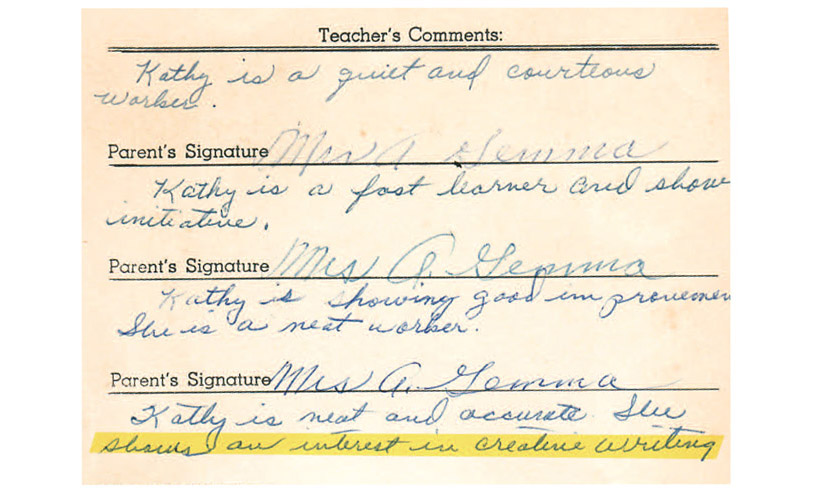 Teacher's Comments:
Kathy is a quiet and courteous
worker.
Parent's Signature Mrs A Gemma
Kathy is a fast learner and show
initiative.
Parent's Signature Mrs A. Gemma
Kathy is showing good improvemen
She is a neat worker.
Parent's Signature Mrs A. Gemma
Kathy is neat and accurate. She
shows an interest in creative writing